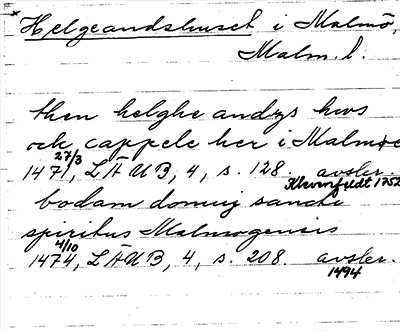 Helgeandshuset i Malmö,
Malm. l.
then helghe andzs hws
och cappele her i Malmøe
27/3
1471, LÄUB, 4, s. 128. avskr.
Klevenfeldt 1752
bodam domus sancti
spiritus Malmogensis
4/10
1474, LÄUB, 4, s. 208. avskr.
1494